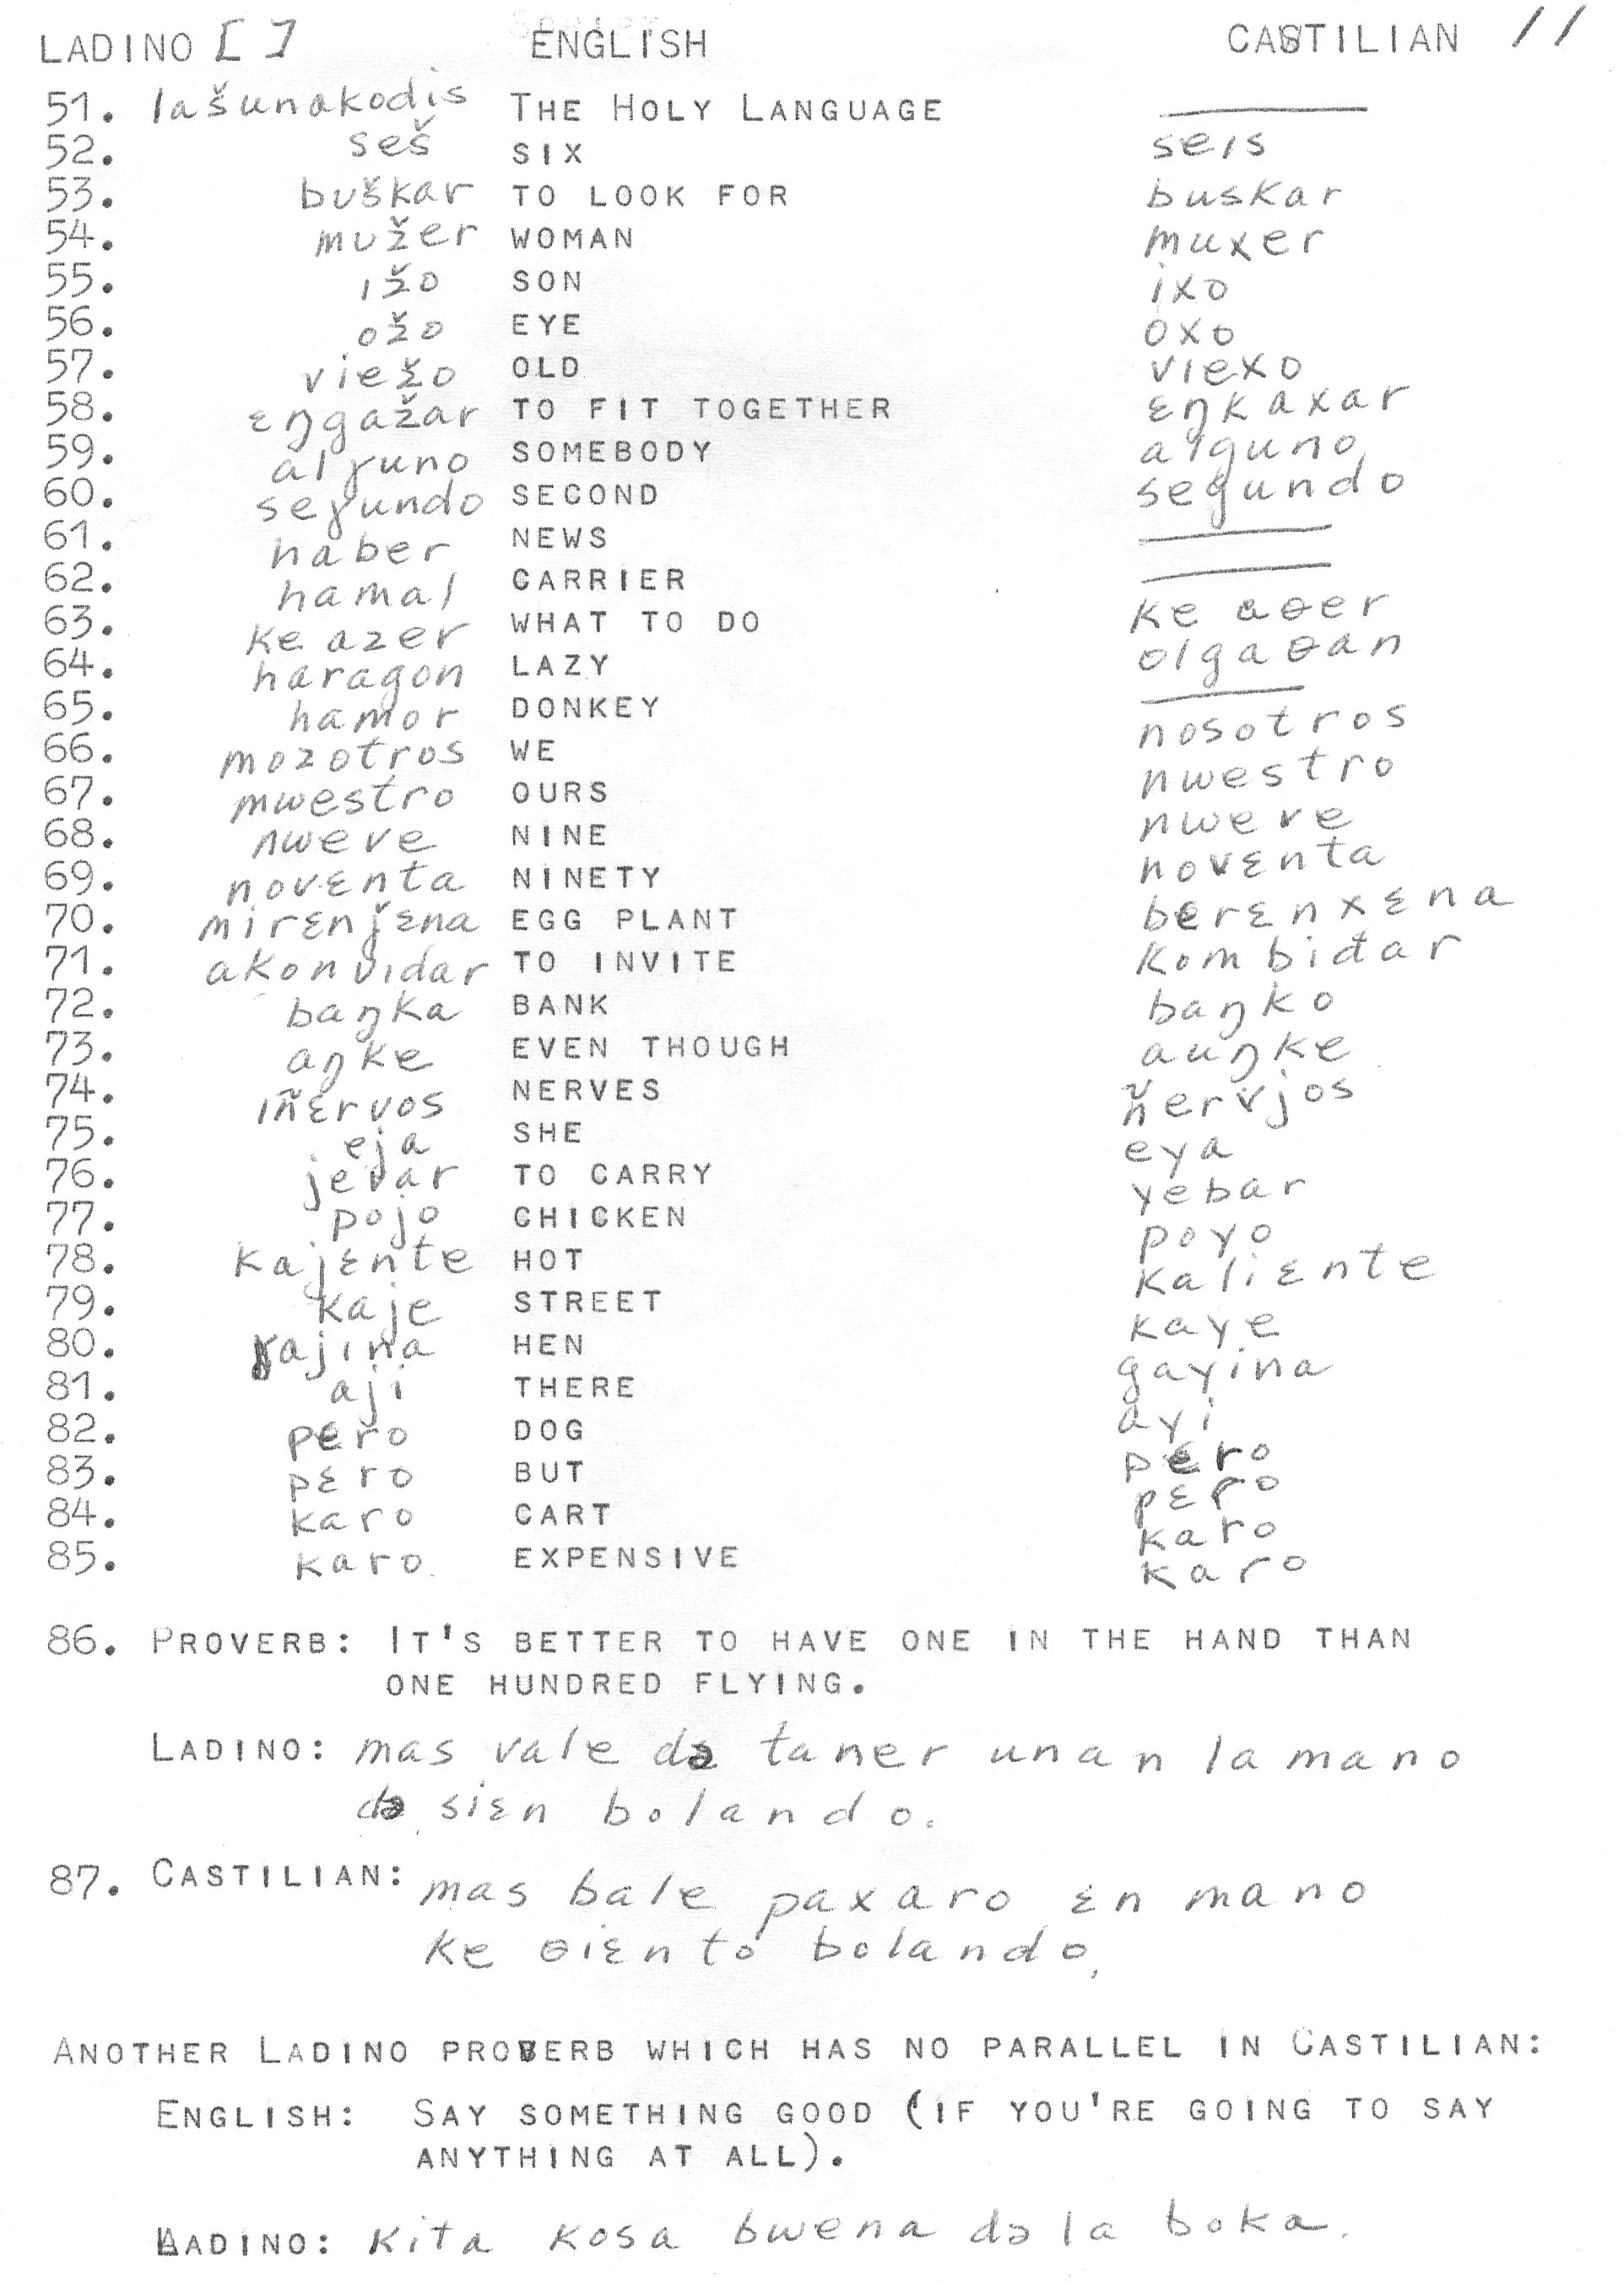 LADINO [ ] ENGLISH CASTILIAN //
51. lašunakodis THE HOLY LANGUAGE ———
52. seš SIX seis
53. buškar TO LOOK FOR buskar
54. mužer WOMAN muxer
55. ižo SON ixo
56. ožo EYE oxo
57. viežo OLD viexo
58. ɛŋgažar TO FIT TOGETHER ɛŋkaxar
59. alɣuno SOMEBODY alguno
60. seɣundo SECOND segundo
61. haber NEWS ———
62. hamal CARRIER ———
63. ke azer WHAT TO DO ke aθer
64. haragon LAZY olgaθan
65. hamor DONKEY ———
66. mozotros WE nosotros
67. mwestro OURS nwestro
68. nweve NINE nweve
69. novɛnta NINETY novɛnta
70. mirɛnǰɛna EGG PLANT berɛnxɛna
71. akonvidar TO INVITE kombiđar
72. baŋka BANK baŋko
73. aŋke EVEN THOUGH auŋke
74. iñɛrvos NERVES ñervjos
75. eja SHE eya
76. jevar TO CARRY yebar
77. pojo CHICKEN poyo
78. kajɛnte HOT kaliɛnte
79. kaje STREET kaye
80. ɣajina HEN gayina
81. aji THERE ayi
82. pero DOG pero
83. pɛro BUT pɛro
84. karo CART karo
85. karo. EXPENSIVE karo
86. PROVERB: IT'S BETTER TO HAVE ONE IN THE HAND THAN
ONE HUNDRED FLYING.
LADINO: mas vale də taner unan la mano
də siɛn bolando.
87. CASTILIAN: mas bale paxaro ɛn mano
ke θiɛnto bolando,
ANOTHER LADINO PROVERB WHICH HAS NO PARALLEL IN CASTILIAN:
ENGLISH: SAY SOMETHING GOOD (IF YOU'RE GOING TO SAY
ANYTHING AT ALL).
LADINO: kita kosa bwena də la boka.